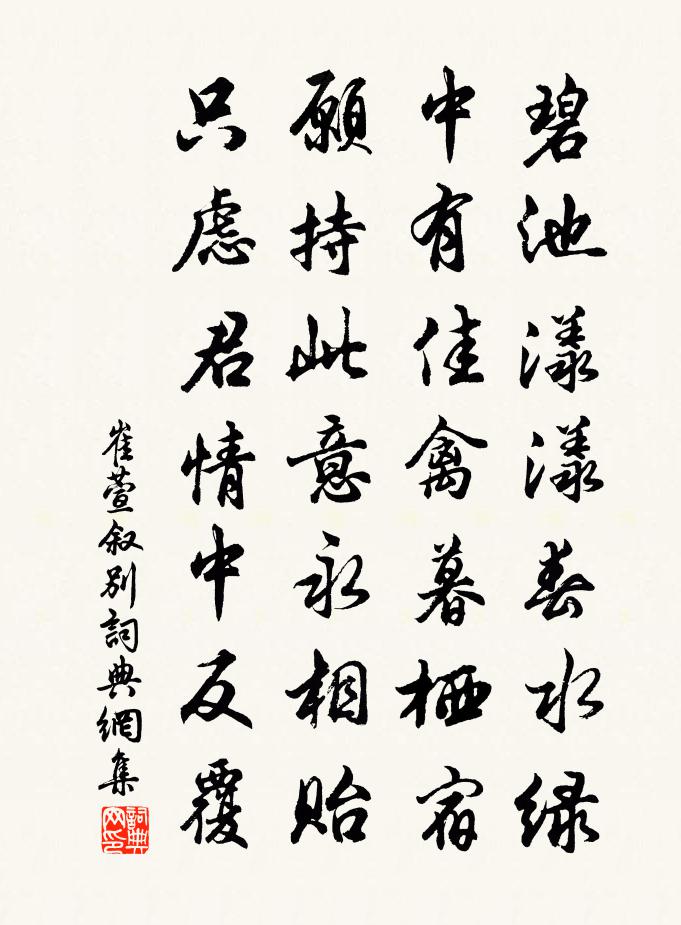 碧池漾漾春水綠
中有佳禽暮栖宿
願持此意永相貽
只慮君情中反覆
崔萱叙别詞典網集
詞典网印